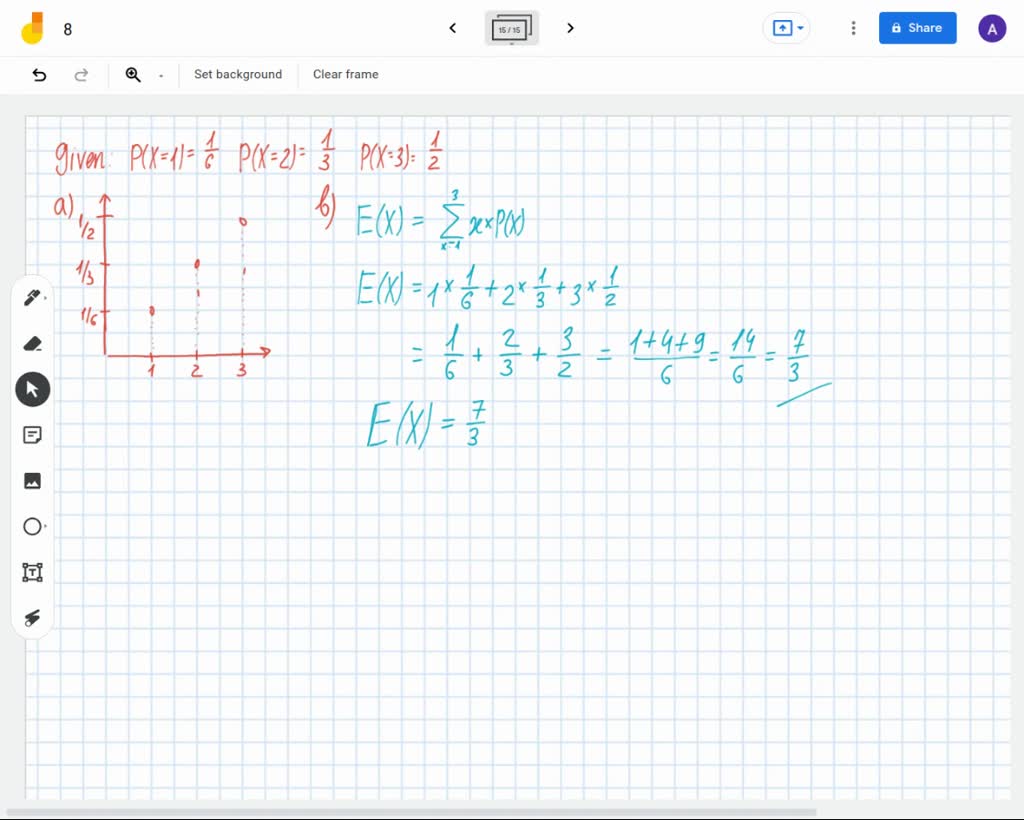 8
15 / 15
Share
A
Set background
Clear frame
given: P(X=1)= 1/6 P(X=2)= 1/3 P(X=3)= 1/2
a)
1/2
1/3
1/6
1 2 3
b) E(X) = ∑ₓ₌₁³ x×P(X)
E(X) = 1 × 1/6 + 2 × 1/3 + 3 × 1/2
= 1/6 + 2/3 + 3/2 = (1+4+9)/6 = 14/6 = 7/3
E(X) = 7/3